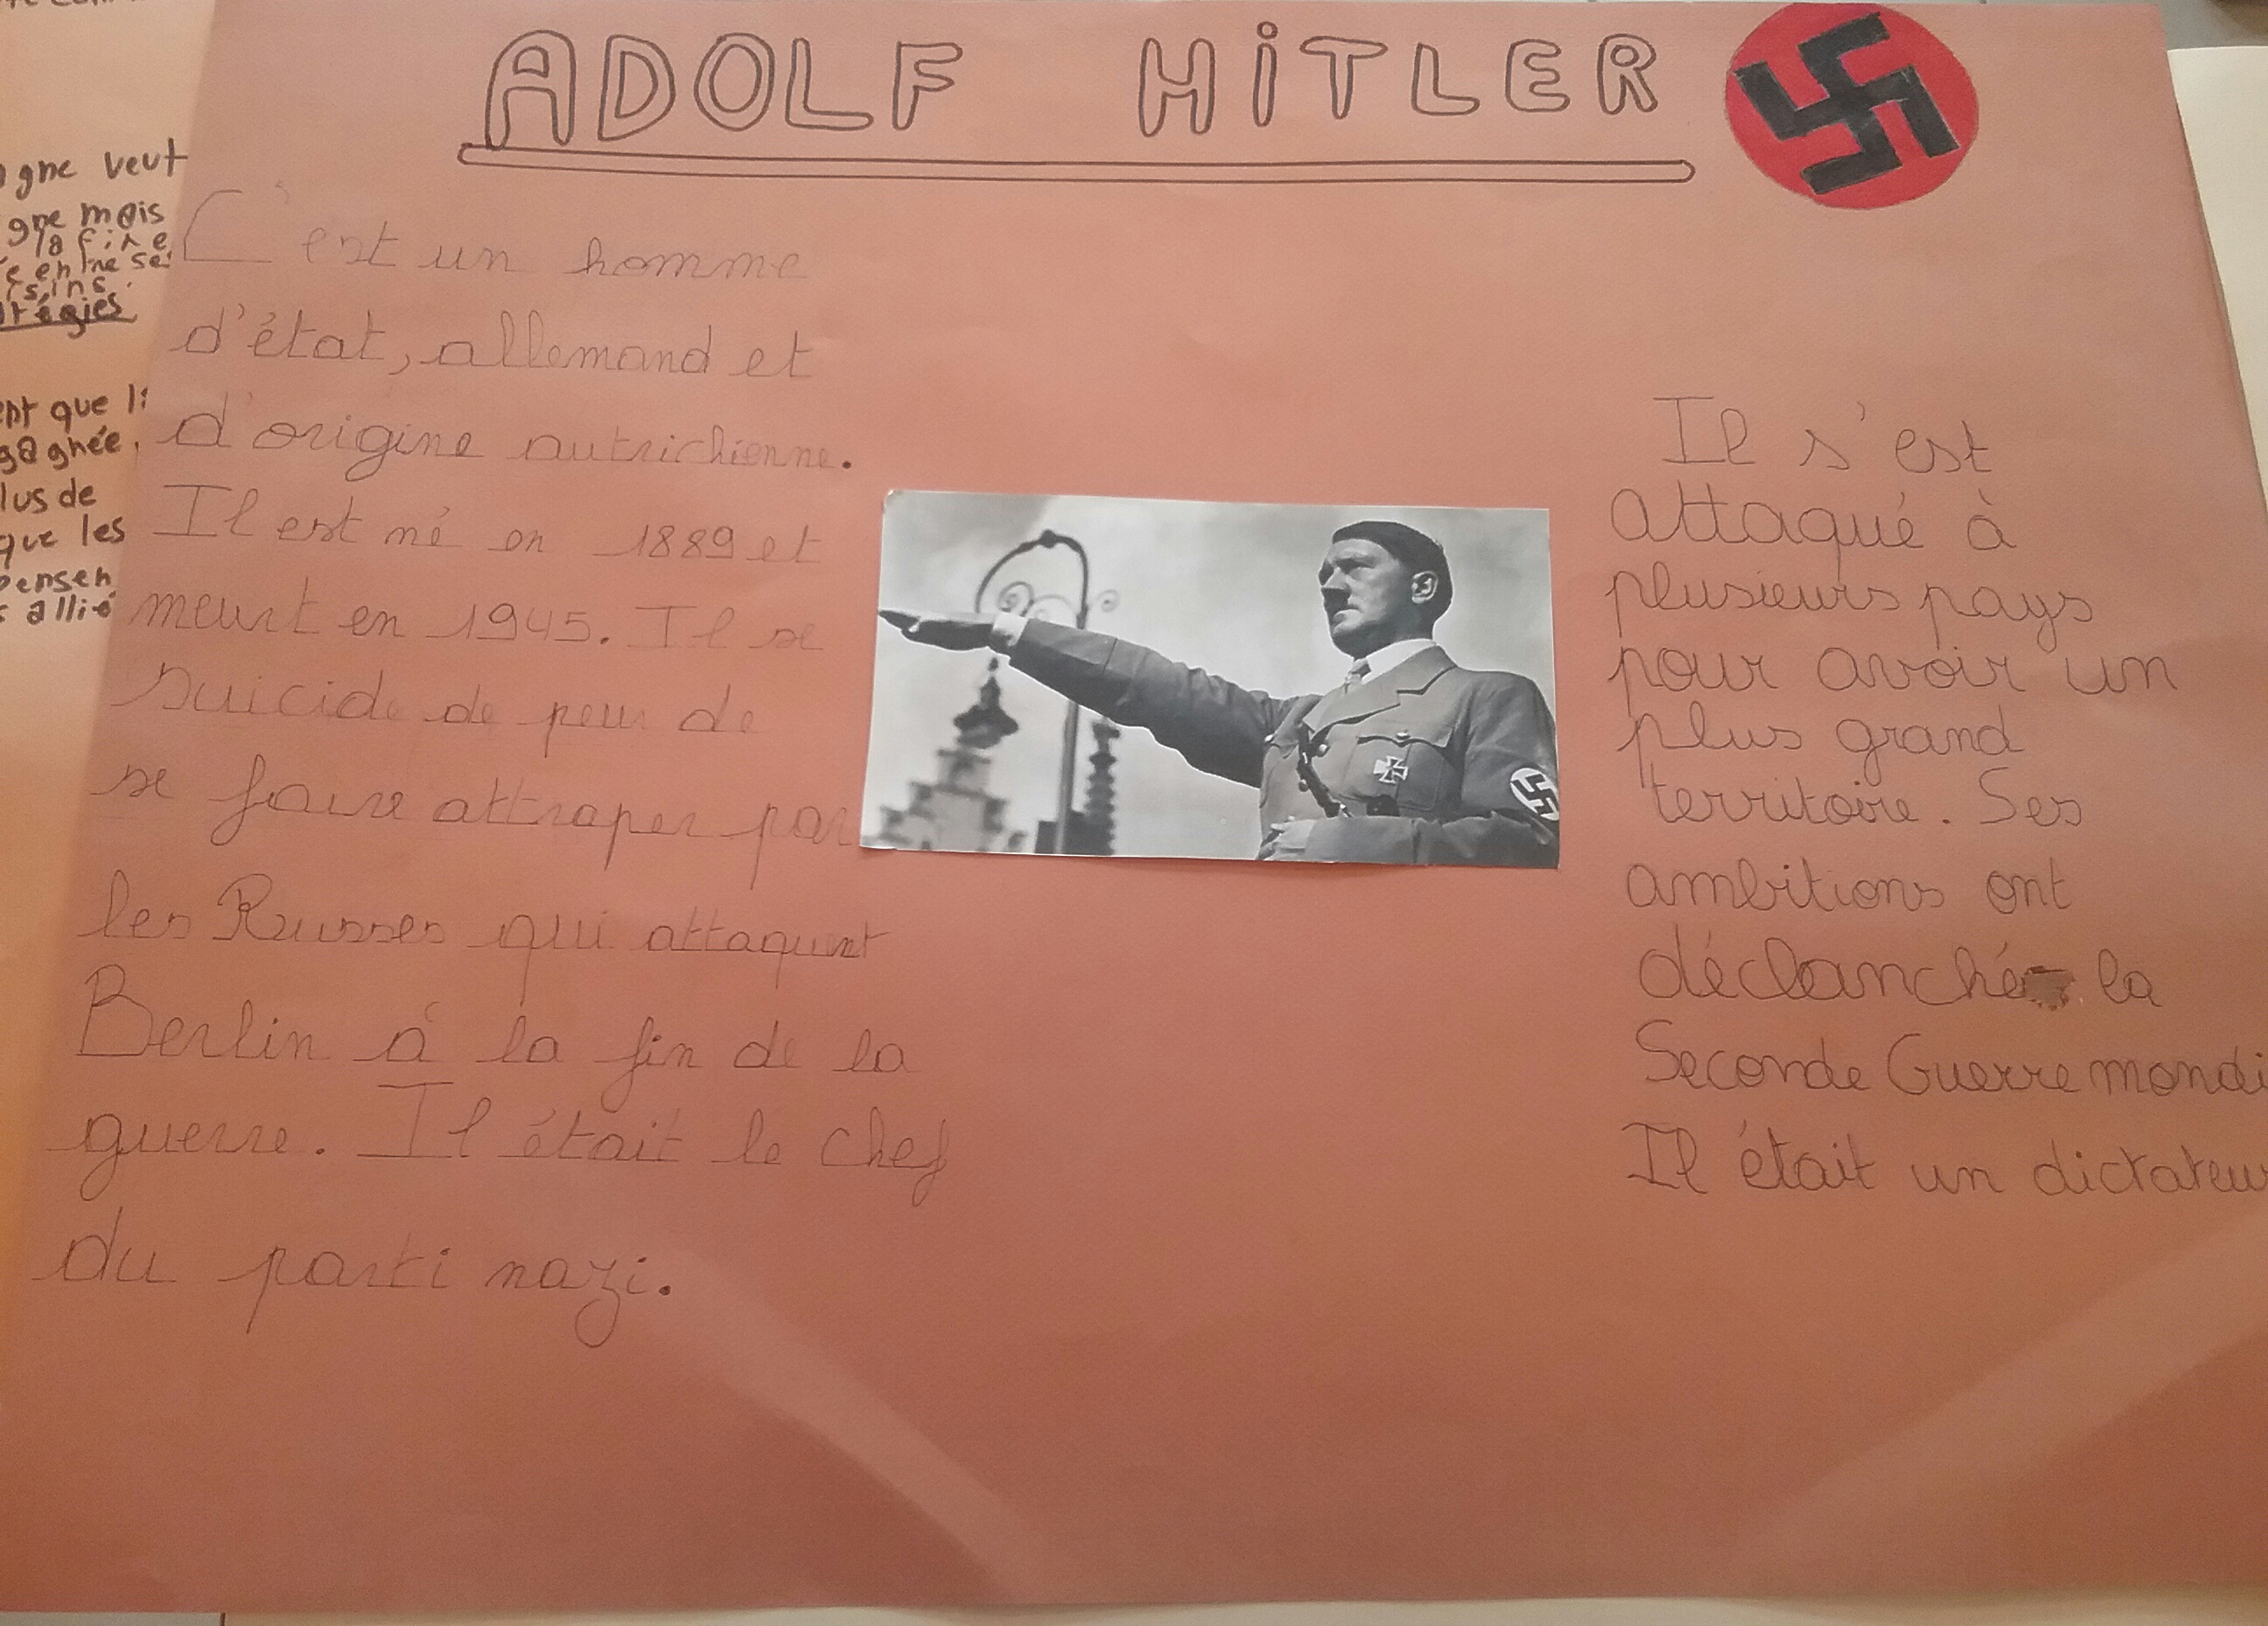 ADOLF HiTLER
C'est un homme
d'état, allemand et
d'origine autrichienne.
Il est né en 1889 et
meurt en 1945. Il se
suicide de peur de
se faire attraper par
les Russes qui attaquent
Berlin à la fin de la
guerre. Il était le chef
du parti nazi.
Il s'est
attaqué à
plusieurs pays
pour avoir un
plus grand
territoire. Ses
ambitions ont
déclanché la
Seconde Guerre mondi
Il était un dictateur
gne veut
gne mais
la fire
que li
gagnée,
lus de
que les
allié